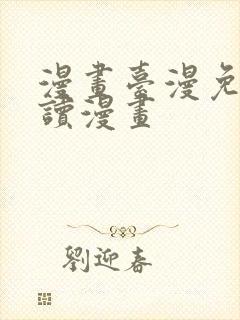 漫畫臺漫免
讀漫畫
劉迎春